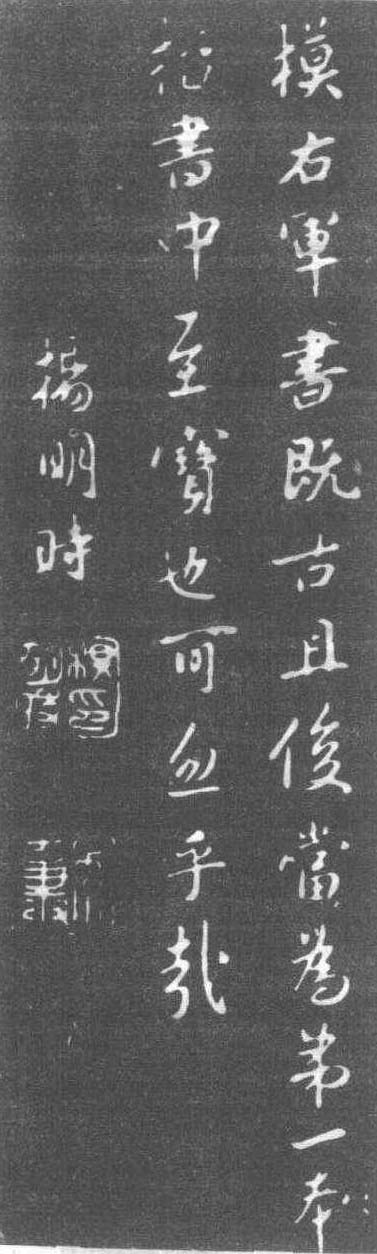 模右軍書既古且俊當為第一本
書中至寶也可忽乎哉
楊明時